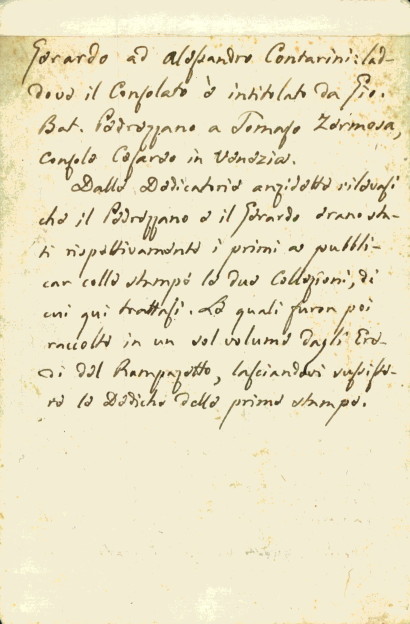 Gerardo ad Alessandro Contarini: lad-
dove il Consolato è intitolato da Gio.
Bat. Pedrezzano a Tomaso Zermosa,
console Cesareo in Venezia.
Dalle Dedicatorie anzidette rilevasi
che il Pedrezzano e il Gerardo erano sta-
ti rispettivamente i primi a pubbli-
car colle stampe le due Collezioni, di
cui qui trattasi. Le quali furon poi
raccolte in un sol volume dagli Ere-
di del Rampazetto, lasciandovi sussiste-
re le Dediche delle prime stampe.